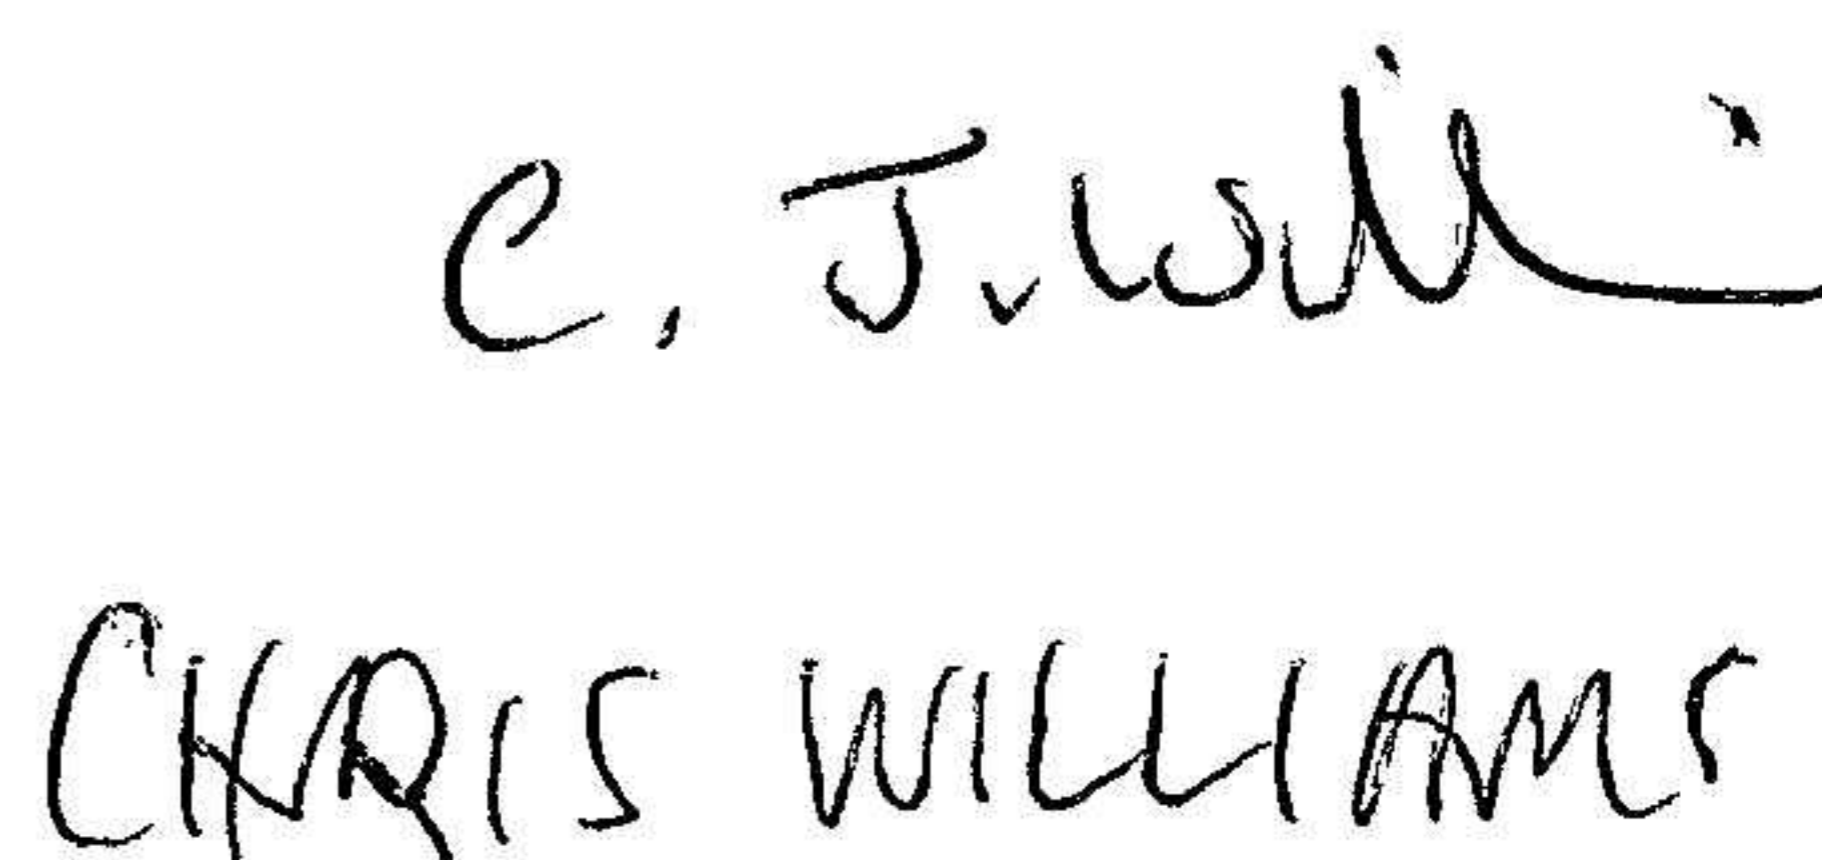 C. J. Willi
CHRIS WILLIAMS